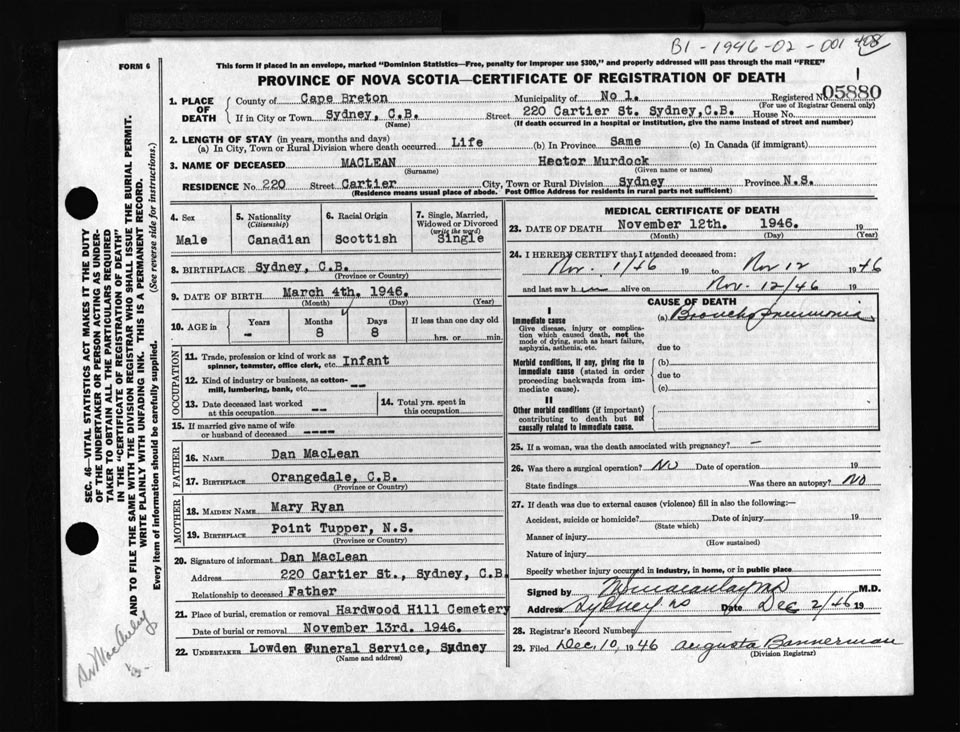 B1-1946-02-001 408
FORM 6
This form if placed in an envelope, marked "Dominion Statistics—Free, penalty for improper use $300," and properly addressed will pass through the mail "FREE"
PROVINCE OF NOVA SCOTIA—CERTIFICATE OF REGISTRATION OF DEATH
1
1. PLACE OF DEATH { County of Cape Breton Municipality of No 1. Registered No. 05880
(For use of Registrar General only)
If in City or Town Sydney, C.B. Street 220 Cartier St. Sydney, C.B. House No.
(Name) (If death occurred in a hospital or institution, give the name instead of street and number)
2. LENGTH OF STAY (in years, months and days)
(a) In City, Town or Rural Division where death occurred Life (b) In Province Same (c) In Canada (if immigrant)
3. NAME OF DECEASED MACLEAN Hector Murdock
(Surname) (Given name or names)
RESIDENCE No. 220 Street Cartier City, Town or Rural Division Sydney Province N.S.
(Residence means usual place of abode. Post Office Address for residents in rural parts not sufficient)
4. Sex Male
5. Nationality (Citizenship) Canadian
6. Racial Origin Scottish
7. Single, Married, Widowed or Divorced (write the word) Single
8. BIRTHPLACE Sydney, C.B.
(Province or Country)
9. DATE OF BIRTH March 4th. 1946.
(Month) (Day) (Year)
10. AGE in Years - Months 8 Days 8 If less than one day old
hrs. or min.
OCCUPATION
11. Trade, profession or kind of work as spinner, teamster, office clerk, etc. Infant
12. Kind of industry or business, as cotton-mill, lumbering, bank, etc. --
13. Date deceased last worked at this occupation --
14. Total yrs. spent in this occupation
15. If married give name of wife or husband of deceased ----
FATHER
16. Name Dan MacLean
17. Birthplace Orangedale, C.B.
(Province or Country)
MOTHER
18. Maiden Name Mary Ryan
19. Birthplace Point Tupper, N.S.
(Province or Country)
20. Signature of informant Dan MacLean
Address 220 Cartier St., Sydney, C.B.
Relationship to deceased Father
21. Place of burial, cremation or removal Hardwood Hill Cemetery
Date of burial or removal November 13rd. 1946.
22. UNDERTAKER Lowden Funeral Service, Sydney
(Name and address)
MEDICAL CERTIFICATE OF DEATH
23. DATE OF DEATH November 12th. 1946. 19
(Month) (Day) (Year)
24. I HEREBY CERTIFY that I attended deceased from:
Nov. 1/46 19 to Nov 12 1946
and last saw h im alive on Nov. 12/46 19
CAUSE OF DEATH
I
Immediate cause (a) Broncho pneumonia
Give disease, injury or complication which caused death, not the mode of dying, such as heart failure, asphyxia, asthenia, etc.
due to
Morbid conditions, if any, giving rise to immediate cause (stated in order proceeding backwards from immediate cause).
(b)
due to
(c)
II
Other morbid conditions (if important) contributing to death but not causally related to immediate cause.
25. If a woman, was the death associated with pregnancy? —
26. Was there a surgical operation? No Date of operation 19
State findings Was there an autopsy? No
27. If death was due to external causes (violence) fill in also the following:—
Accident, suicide or homicide? Date of injury 19
(State which)
Manner of injury
(How sustained)
Nature of injury
Specify whether injury occurred in industry, in home, or in public place
Signed by M.D.
Address Sydney NS Date Dec 2/46 19
28. Registrar's Record Number
29. Filed Dec. 10, 1946 Augusta Bannerman
(Division Registrar)
SEC. 46—VITAL STATISTICS ACT MAKES IT THE DUTY
OF THE UNDERTAKER OR PERSON ACTING AS UNDER-
TAKER TO OBTAIN ALL THE PARTICULARS REQUIRED
IN THE "CERTIFICATE OF REGISTRATION OF DEATH"
AND TO FILE THE SAME WITH THE DIVISION REGISTRAR WHO SHALL ISSUE THE BURIAL PERMIT.
WRITE PLAINLY WITH UNFADING INK. THIS IS A PERMANENT RECORD.
Every item of information should be carefully supplied. (See reverse side for instructions.)
Dr MacAulay